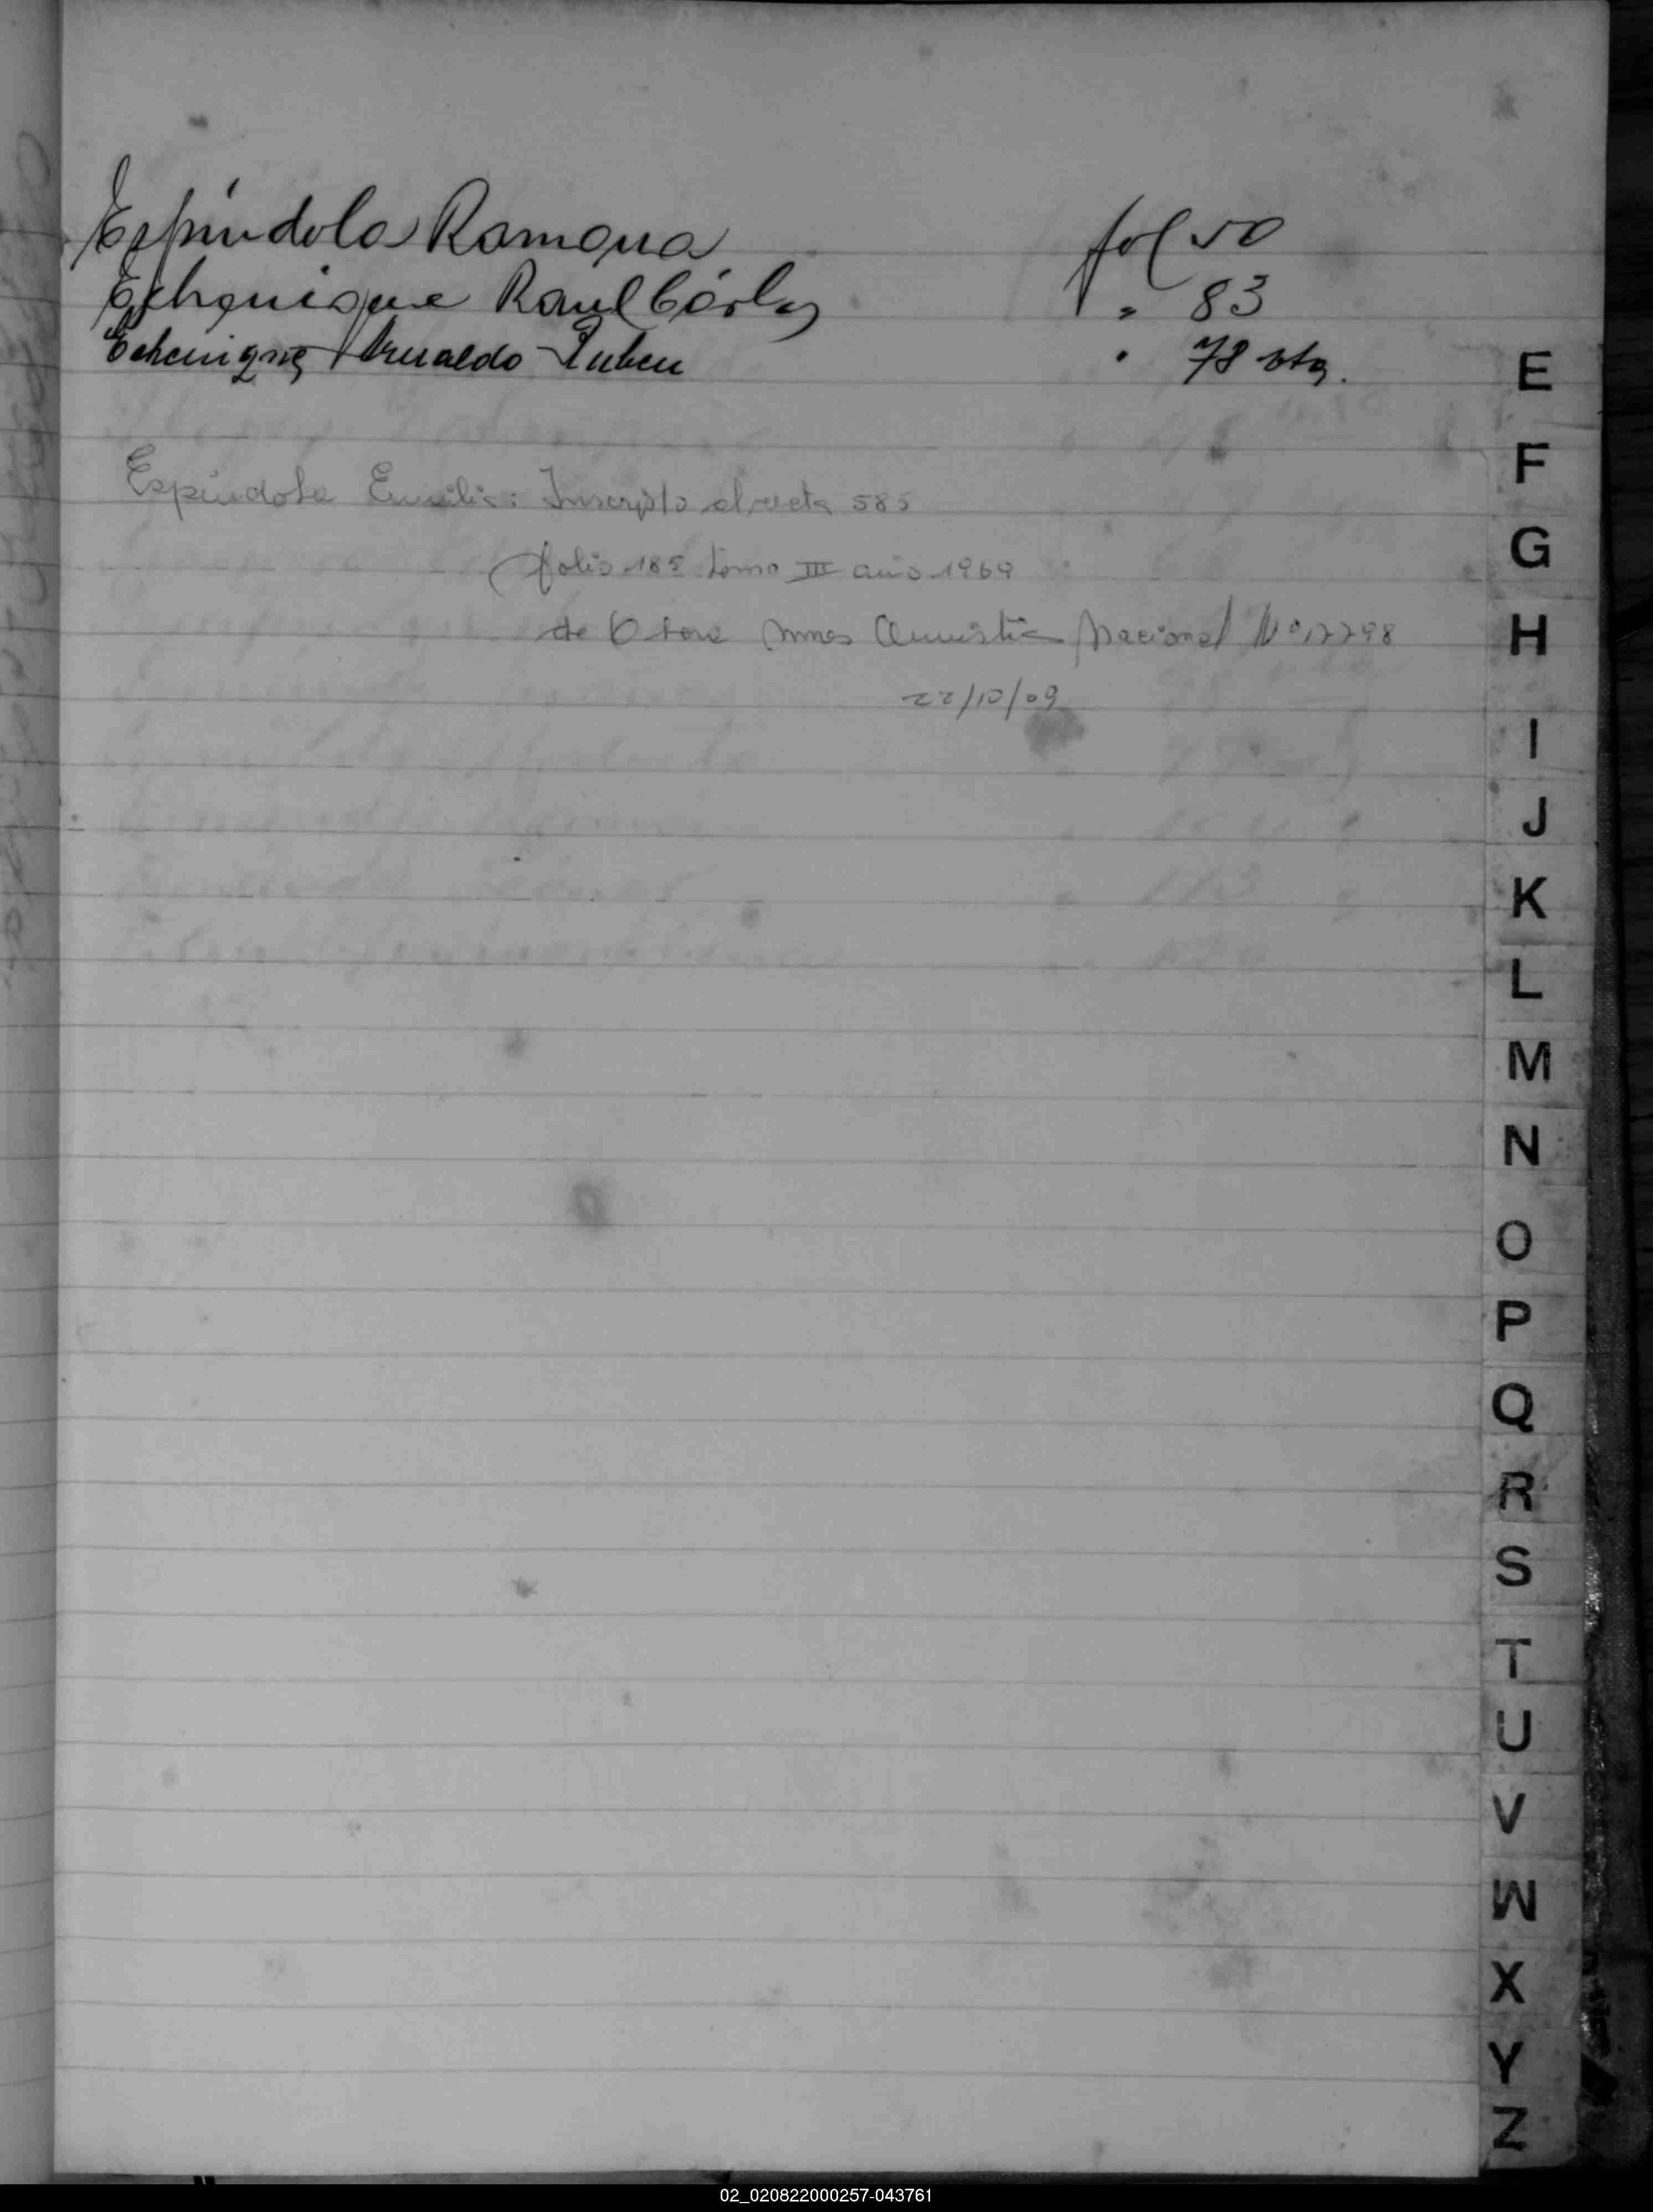 Espíndola Ramona fol 50
Echenique Raul Cárlos " 83
Echenique Arnaldo Ruben " 78 vta.
Espíndola Emilia: Inscripto al acta 585
folio 185 tomo III año 1969
de Obera Mnes Amnistia Nacional Nº 17798
22/10/09
E
F
G
H
I
J
K
L
M
N
O
P
Q
R
S
T
U
V
W
X
Y
Z
02_020822000257-043761